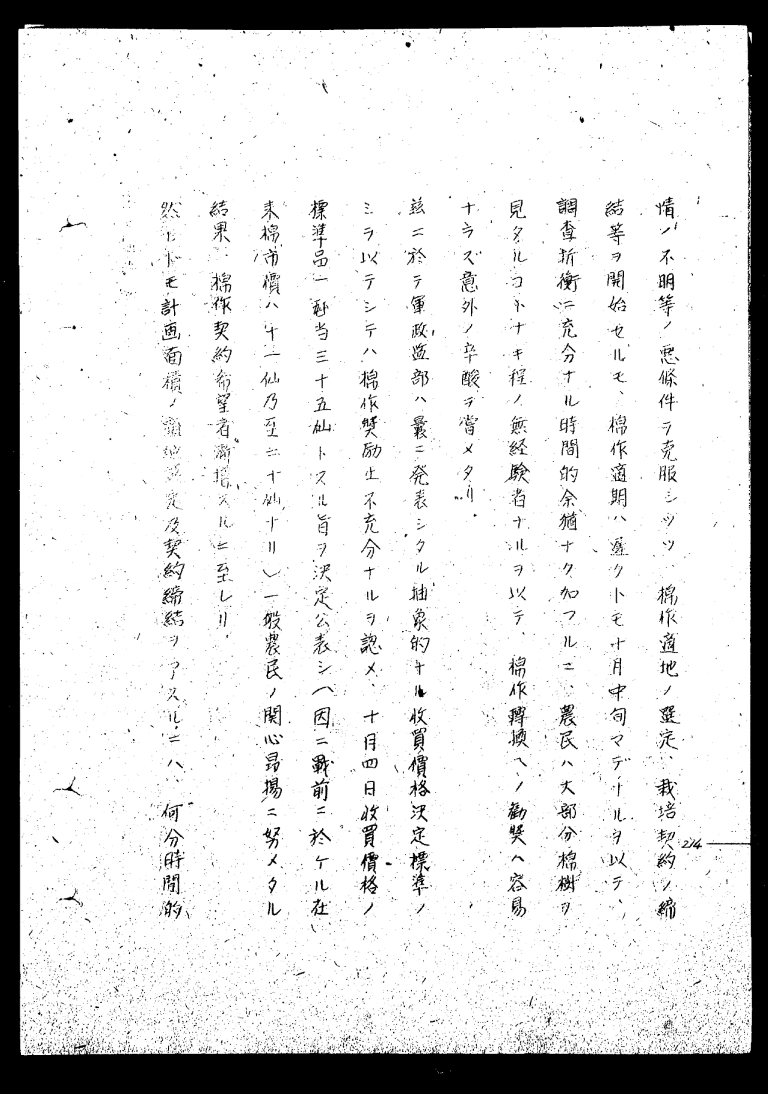 情ノ不明等ノ悪條件ヲ克服シツツ、棉作適地ノ選定、栽培契約ノ締
結等ヲ開始セルモ、棉作適期ハ遅クトモ十月中旬マデナルヲ以テ、
調査折衝ニ充分ナル時間的余猶ナク加フルニ、農民ハ大部分棉樹ヲ
見タルコトナキ程ノ無経験者ナルヲ以テ、棉作轉換ヘノ勧奨ハ容易
ナラズ意外ノ辛酸ヲ嘗メタリ。
茲ニ於テ軍政監部ハ曩ニ発表シタル抽象的ナル收買價格決定標準ノ
ミヲ以テシテハ棉作奬励上不充分ナルヲ認メ、十月四日收買價格ノ
標準品一封当三十五仙トスル旨ヲ決定公表シ(因ニ戰前ニ於ケル在
来棉市價ハ十二仙乃至二十仙ナリ)一般農民ノ関心昂揚ニ努メタル
結果、棉作契約希望者漸増スルニ至レリ。
然レドモ計画面積ノ選定及契約締結ヲスルニハ、何分時間的
214